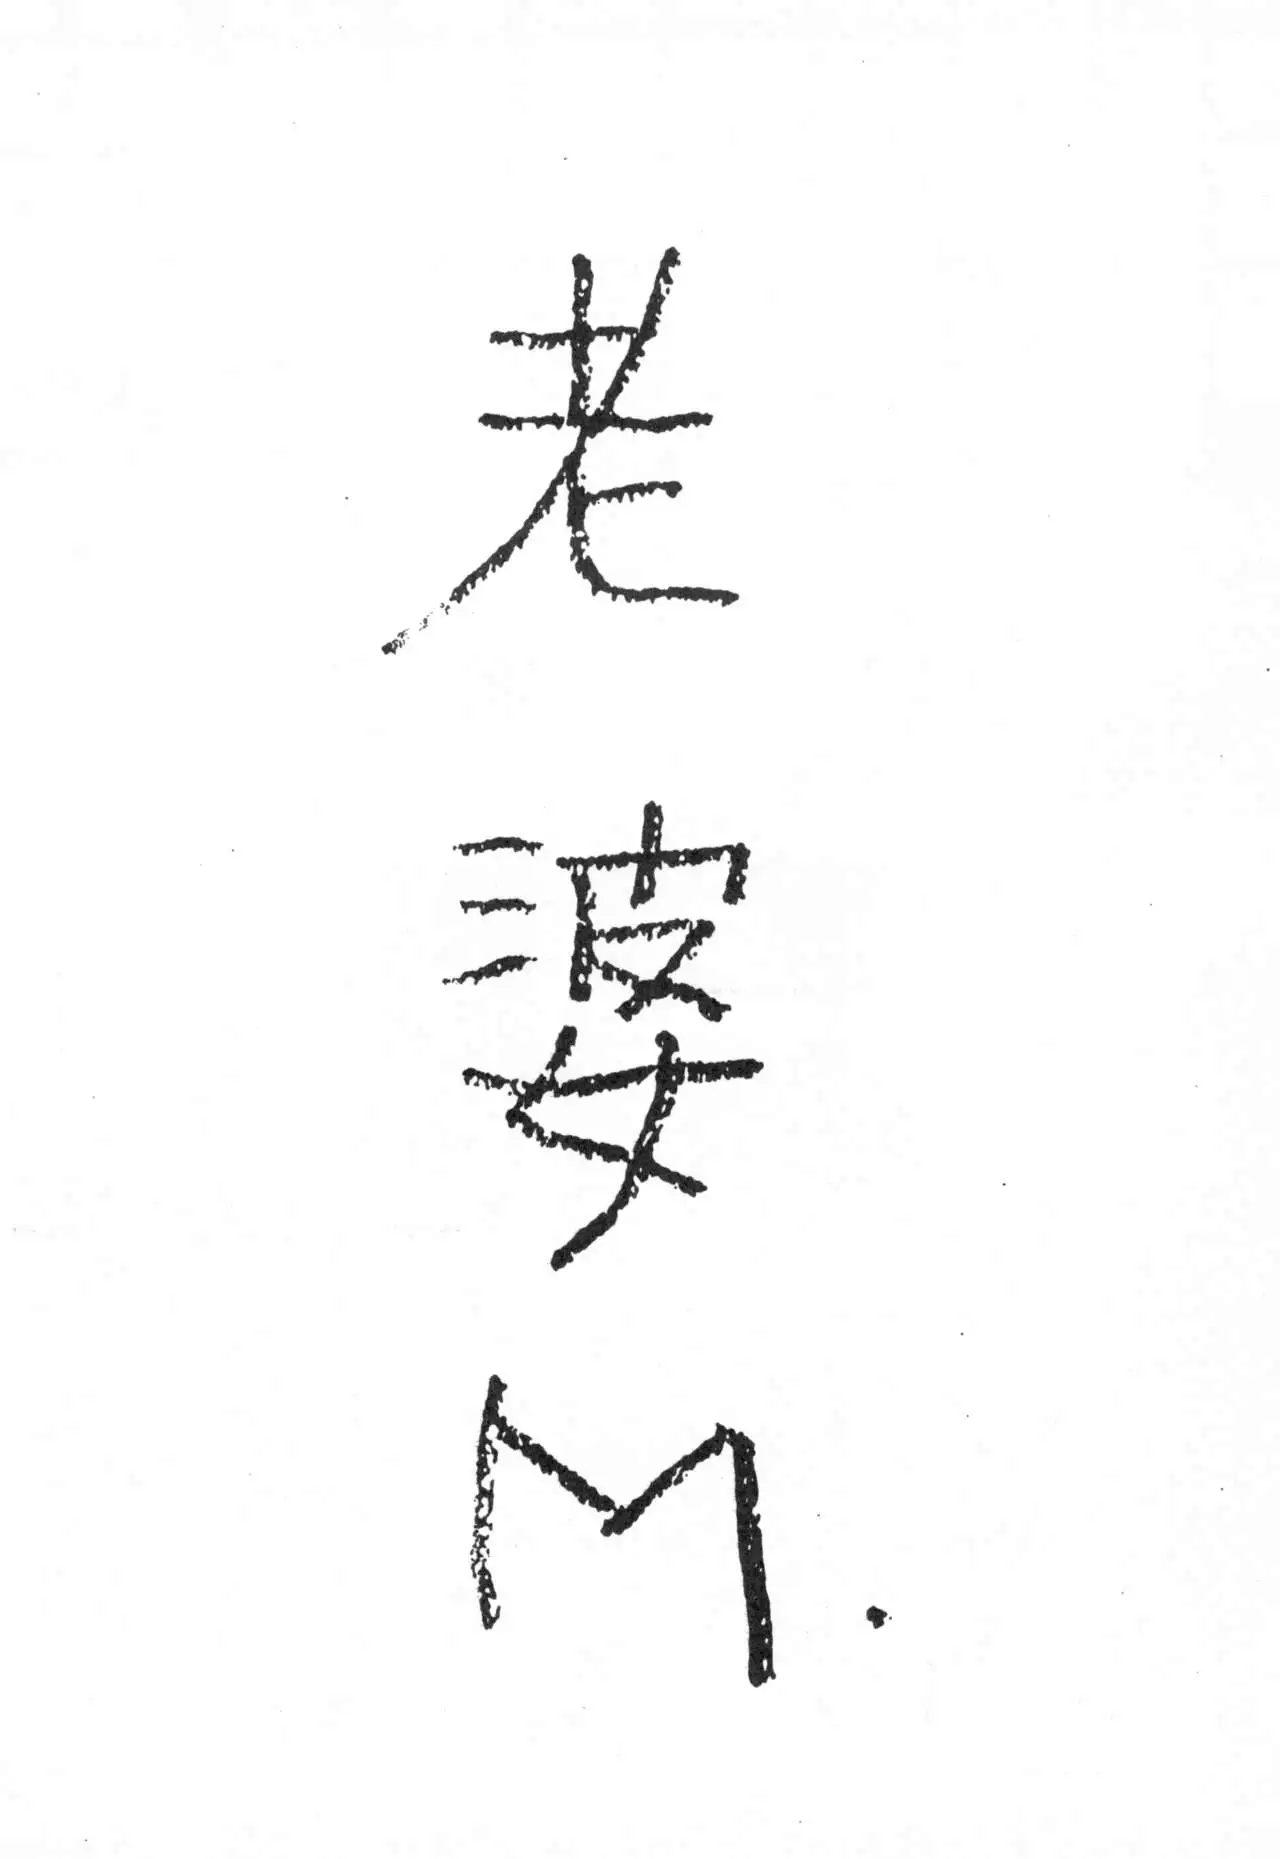 老
婆
M.